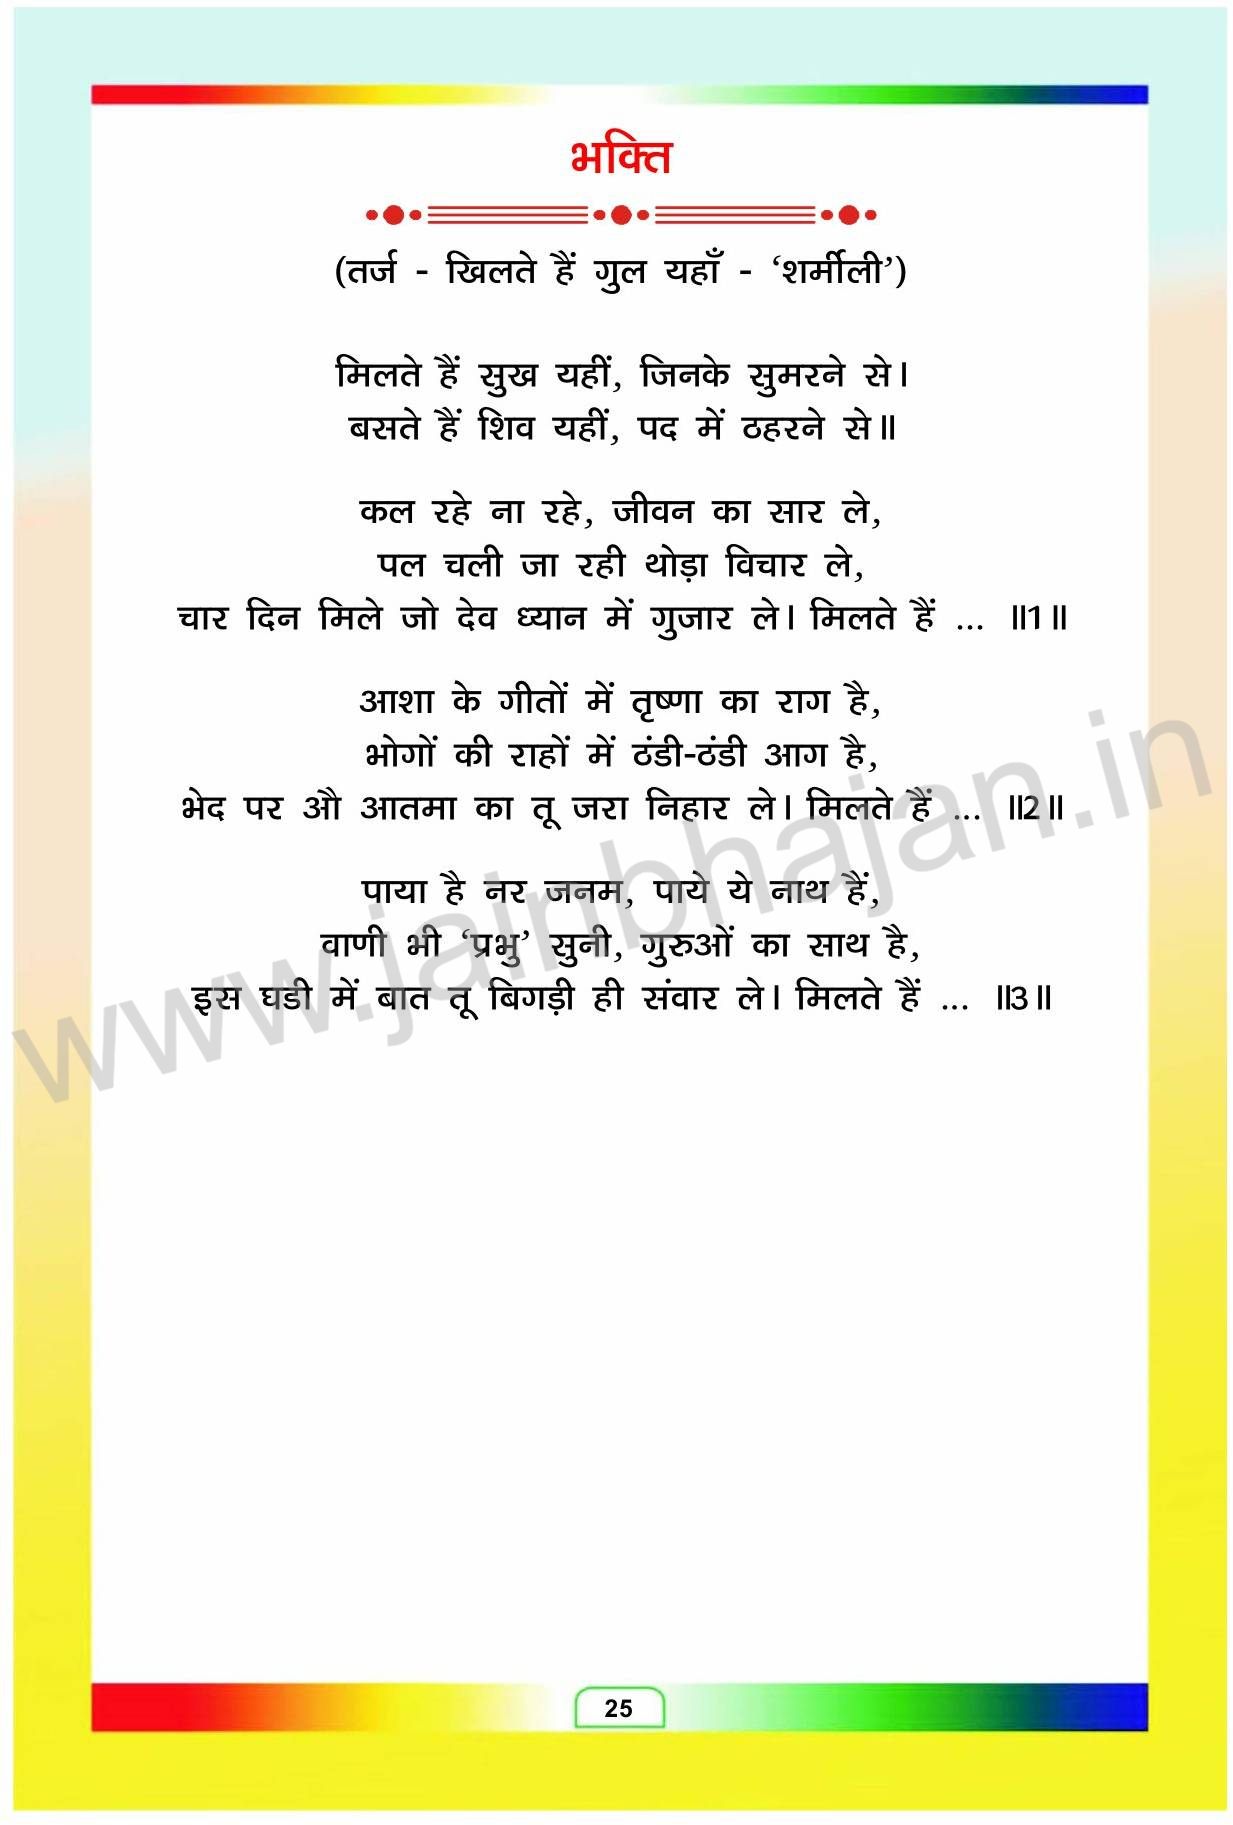 भक्ति
(तर्ज - खिलते हैं गुल यहाँ - ‘शर्मीली’)
मिलते हैं सुख यहीं, जिनके सुमरने से।
बसते हैं शिव यहीं, पद में ठहरने से॥
कल रहे ना रहे, जीवन का सार ले,
पल चली जा रही थोड़ा विचार ले,
चार दिन मिले जो देव ध्यान में गुजार ले। मिलते हैं ... ॥1॥
आशा के गीतों में तृष्णा का राग है,
भोगों की राहों में ठंडी-ठंडी आग है,
भेद पर औ आतमा का तू जरा निहार ले। मिलते हैं ... ॥2॥
पाया है नर जनम, पाये ये नाथ हैं,
वाणी भी ‘प्रभु’ सुनी, गुरुओं का साथ है,
इस घडी में बात तू बिगड़ी ही संवार ले। मिलते हैं ... ॥3॥
www.jainbhajan.in
25